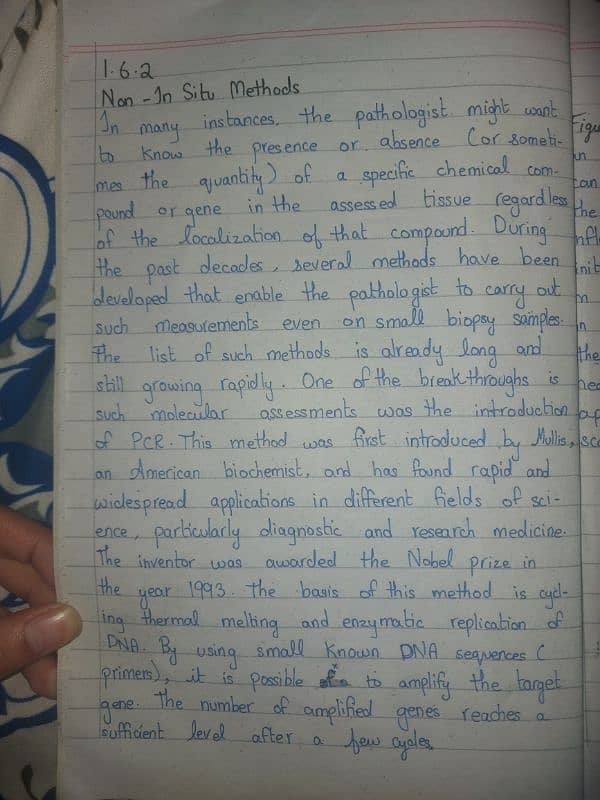 1.6.2
Non-In Situ Methods
In many instances, the pathologist might want
to know the presence or absence (or someti-
mes the quantity) of a specific chemical com-
pound or gene in the assessed tissue regardless
of the localization of that compound. During
the past decades, several methods have been
developed that enable the pathologist to carry out
such measurements even on small biopsy samples.
The list of such methods is already long and
still growing rapidly. One of the breakthroughs is
such molecular assessments was the introduction
of PCR. This method was first introduced by Mullis,
an American biochemist, and has found rapid and
widespread applications in different fields of sci-
ence, particularly diagnostic and research medicine.
The inventor was awarded the Nobel prize in
the year 1993. The basis of this method is cycl-
ing thermal melting and enzymatic replication of
DNA. By using small known DNA sequences (
primers), it is possible to amplify the target
gene. The number of amplified genes reaches a
sufficient level after a few cycles.
Figu
can
the
the